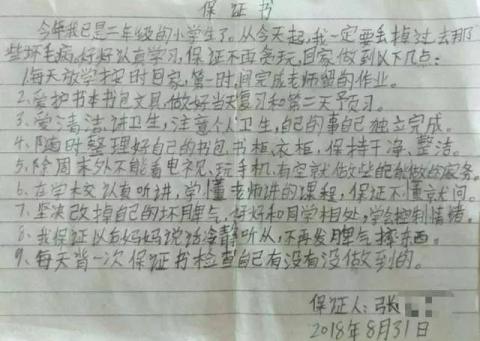 保证书
今年我已是二年级的小学生了。从今天起,我一定要丢掉过去那
些坏毛病,好好认真学习,保证不再贪玩,自家做到以下几点:
1.每天放学按时回家,第一时间完成老师留的作业。
2、爱护书本书包文具,做好当天复习和第二天予习。
3、爱清洁,讲卫生,注意个人卫生,自己的事自己独立完成。
4、随时整理好自己的书包,书柜,衣柜,保持干净、整洁。
5、除周末外不能看电视、玩手机,有空就做些能做的家务。
6、在学校认真听讲,学懂老师讲的课程,保证不懂就问。
7、坚决改掉自己的坏脾气,好好和同学相处,学会控制情绪。
8、我保证以后妈妈说话冷静听从,不再发脾气摔东西。
9、每天背一次保证书检查自己有没有没做到的。
保证人:张
2018年8月31日